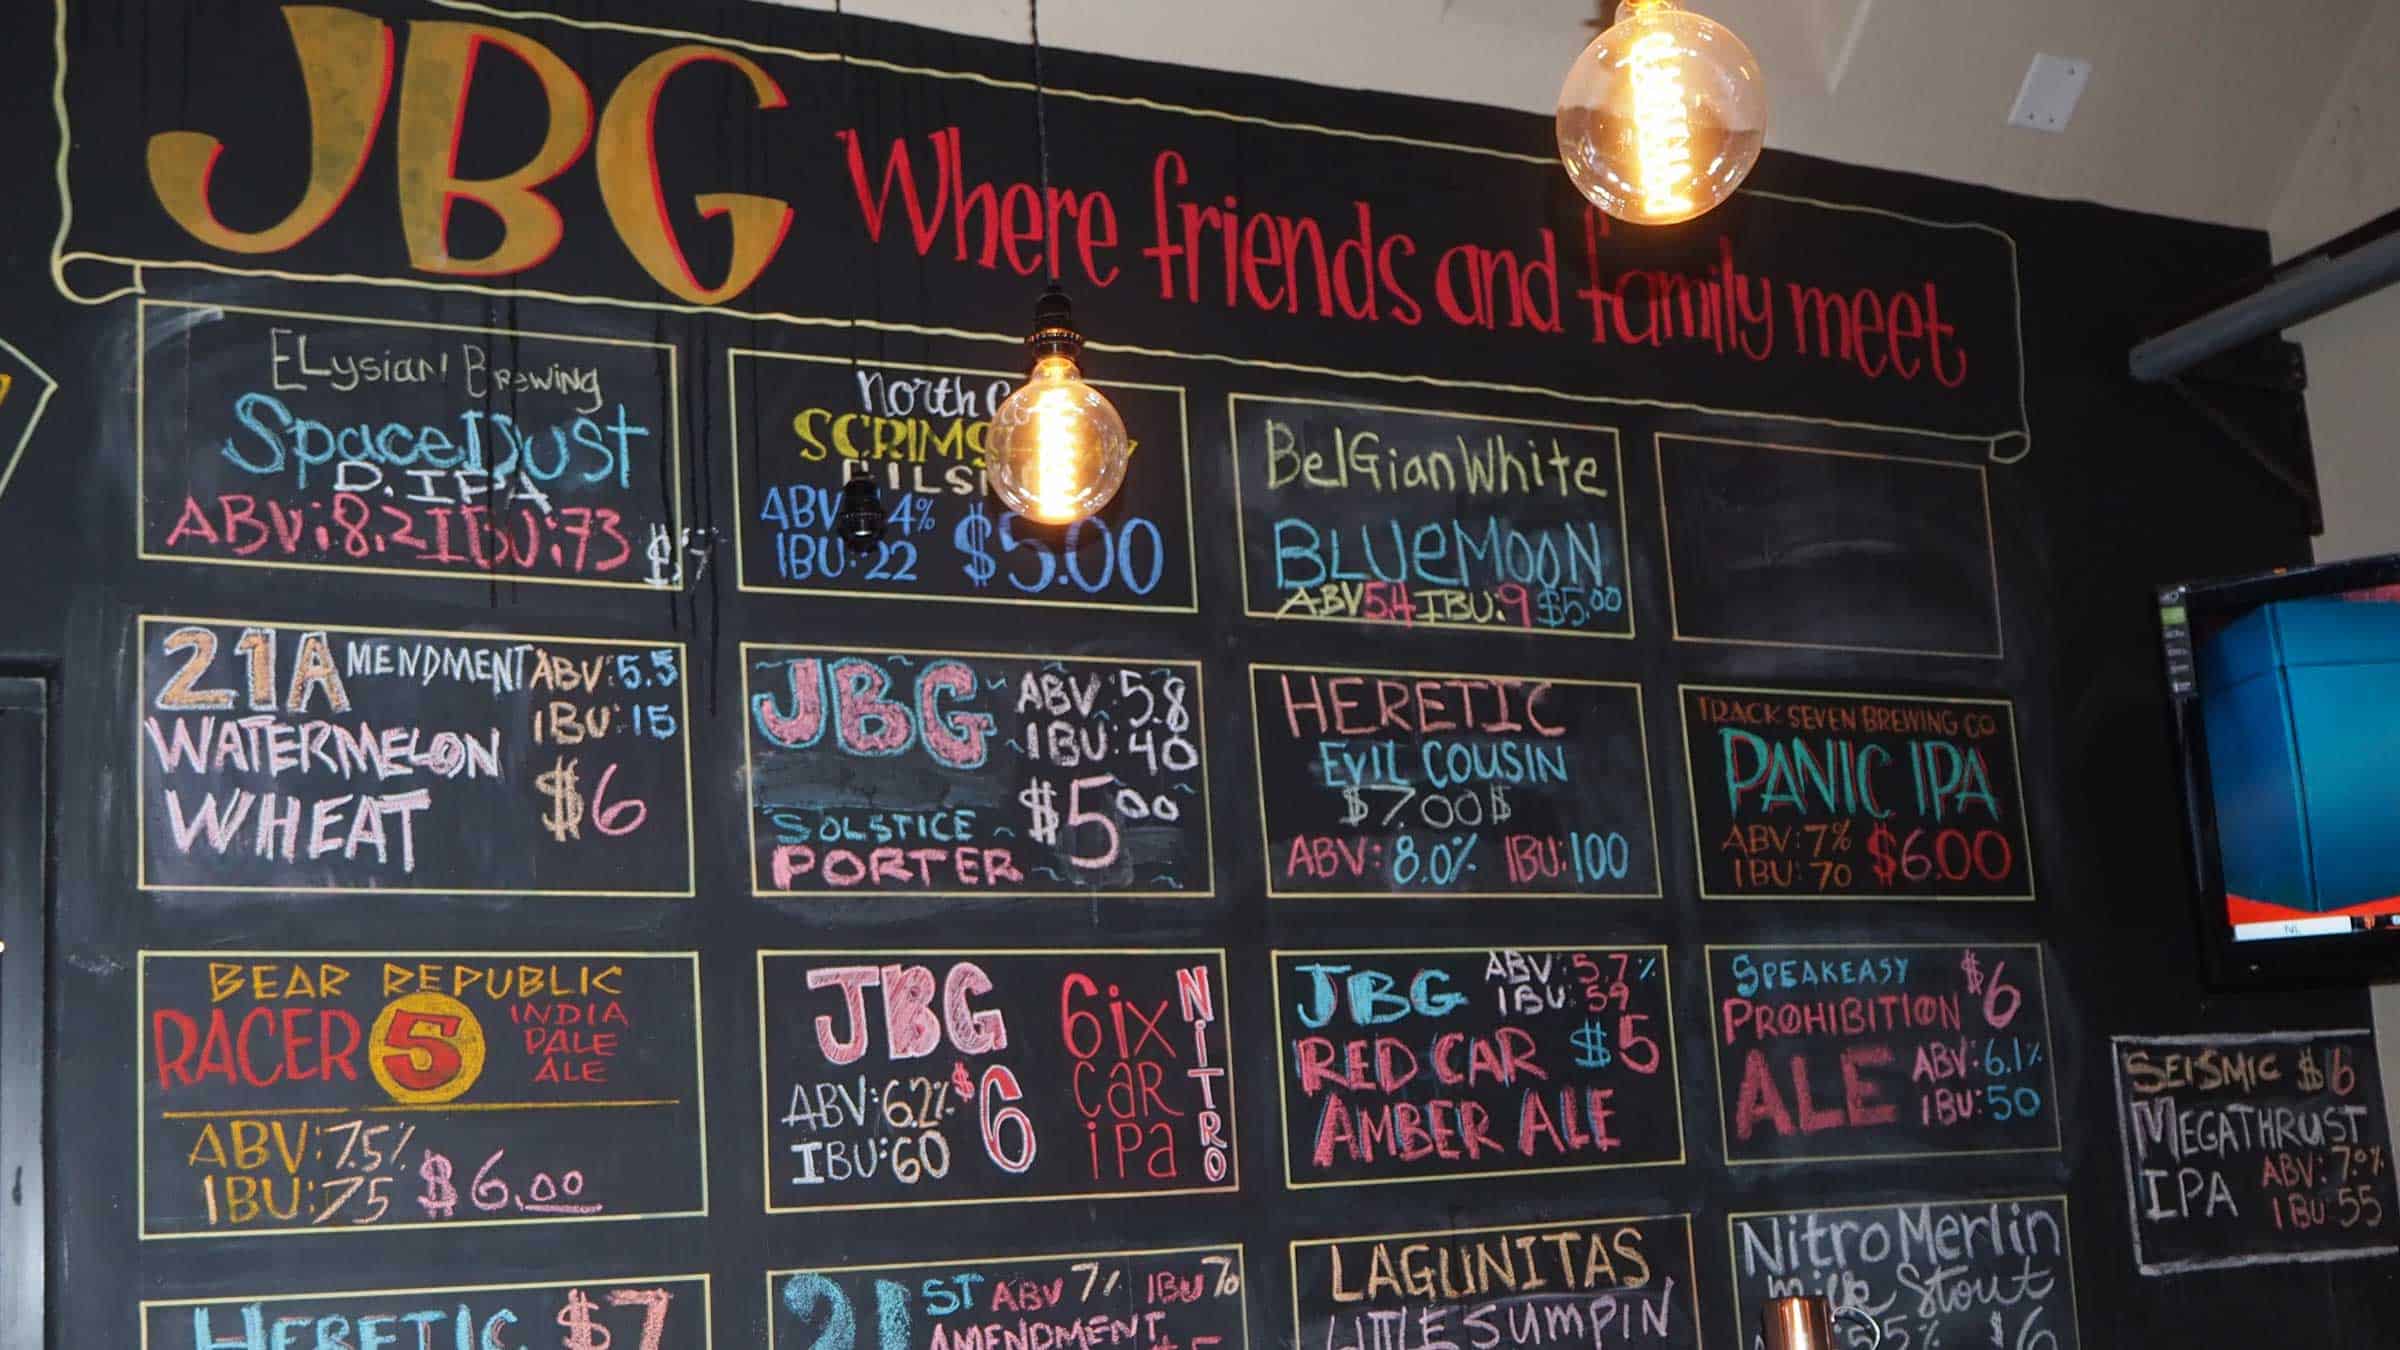 JBG Where friends and family meet
ELysian Brewing
SpaceDust
D. IPA
ABV:8.2 IBU:73 $7
North
ABV 4%
IBU:22 $5.00
BelGian White
BLUeMOON
ABV 5.4 IBU:9 $5.00
21AMENDMENT ABV:5.5
IBU:15
WATERMELON
WHEAT $6
JBG ABV:5.8
IBU:40
$5.00
SOLSTICE
PORTER
HERETIC
EVIL COUSIN
$7.00$
ABV:8.0% IBU:100
TRACK SEVEN BREWING CO
PANIC IPA
ABV:7%
IBU:70 $6.00
BEAR REPUBLIC
RACER 5 INDIA
PALE
ALE
ABV:7.5%
IBU:75 $6.00
JBG
ABV:6.2% $6
IBU:60
6ix
CaR
iPa
NiTRO
JBG ABV:5.7%
IBU:59
RED CAR $5
AMBER ALE
SPEAKEASY $6
PROHIBITION
ALE ABV:6.1%
IBU:50
SEISMIC $6
MEGATHRUST
IPA ABV:7.0%
IBU:55
HERETIC $7
21ST ABV 7% IBU 70
AMENDMENT
LAGUNITAS
LITTLE SUMPIN
Nitro Merlin
milk Stout
$6